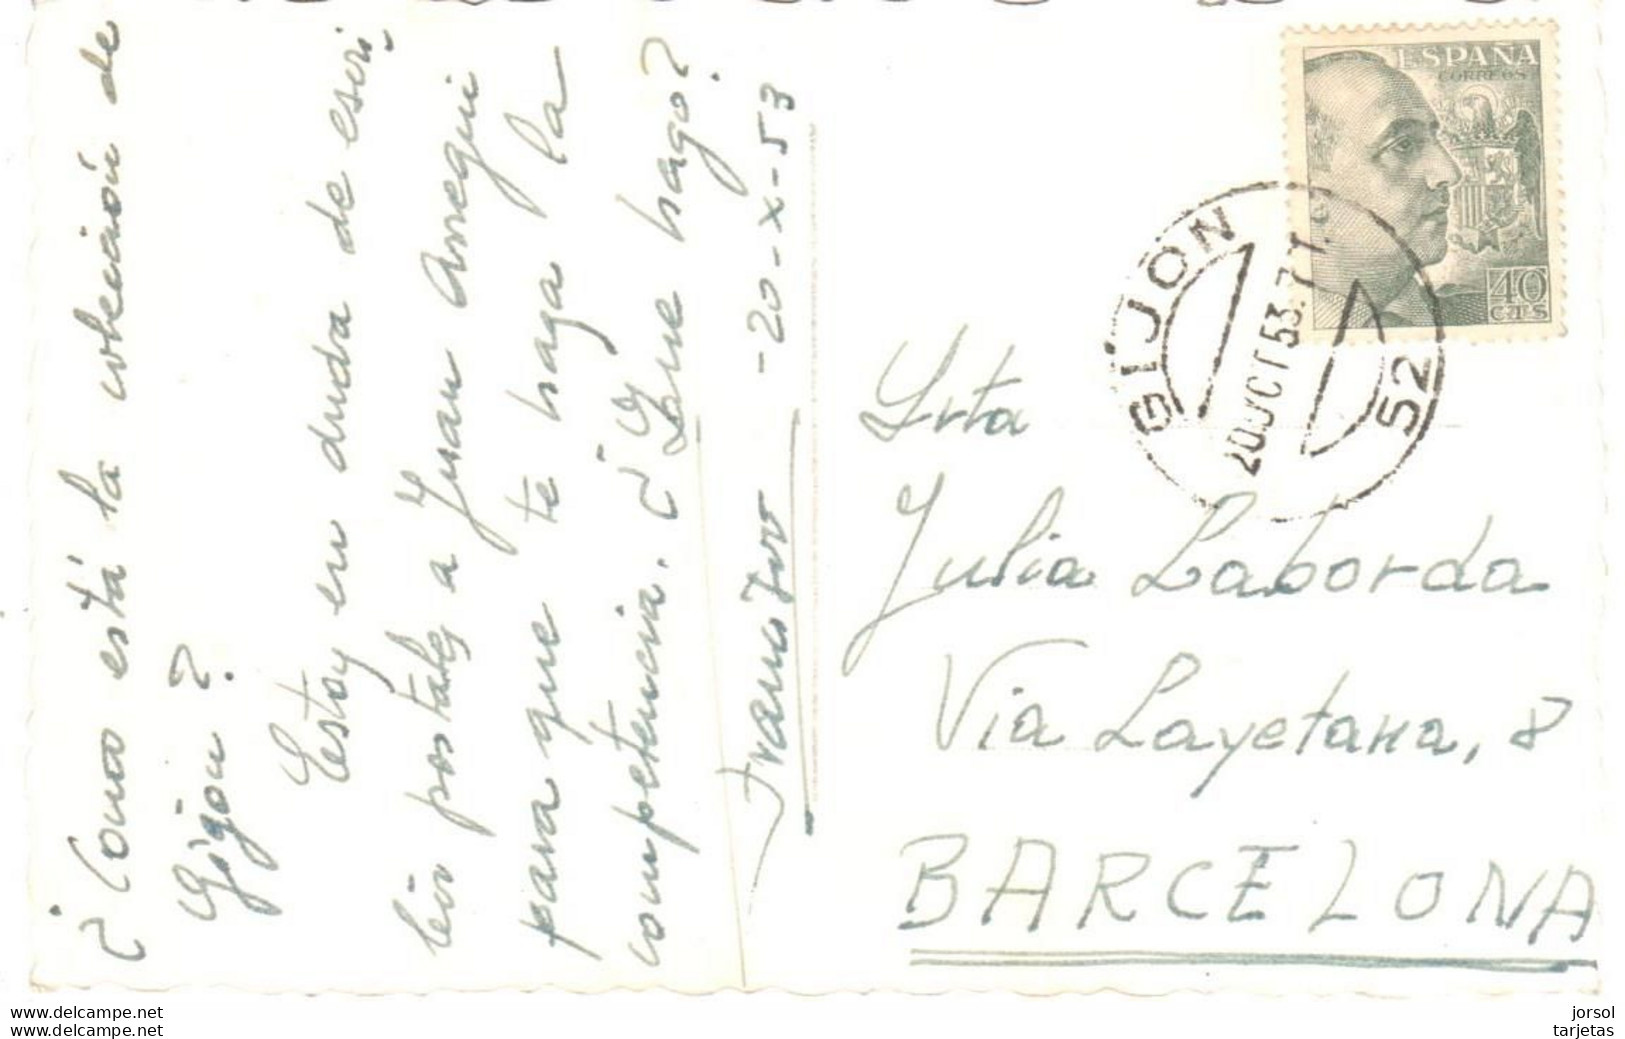 ¿Como está la colección de
Gijón?
Estoy en duda de escri
bir postales a Juan Arregui
para que te haga la
competencia. ¿Que hago?
Francisco -20-X-53
ESPAÑA
CORREOS
40
CTS
GIJON
20 OCT 53.7 T.
52
Srta
Julia Laborda
Via Layetana, 8
BARCELONA
www.delcampe.net
www.delcampe.net
jorsol
tarjetas